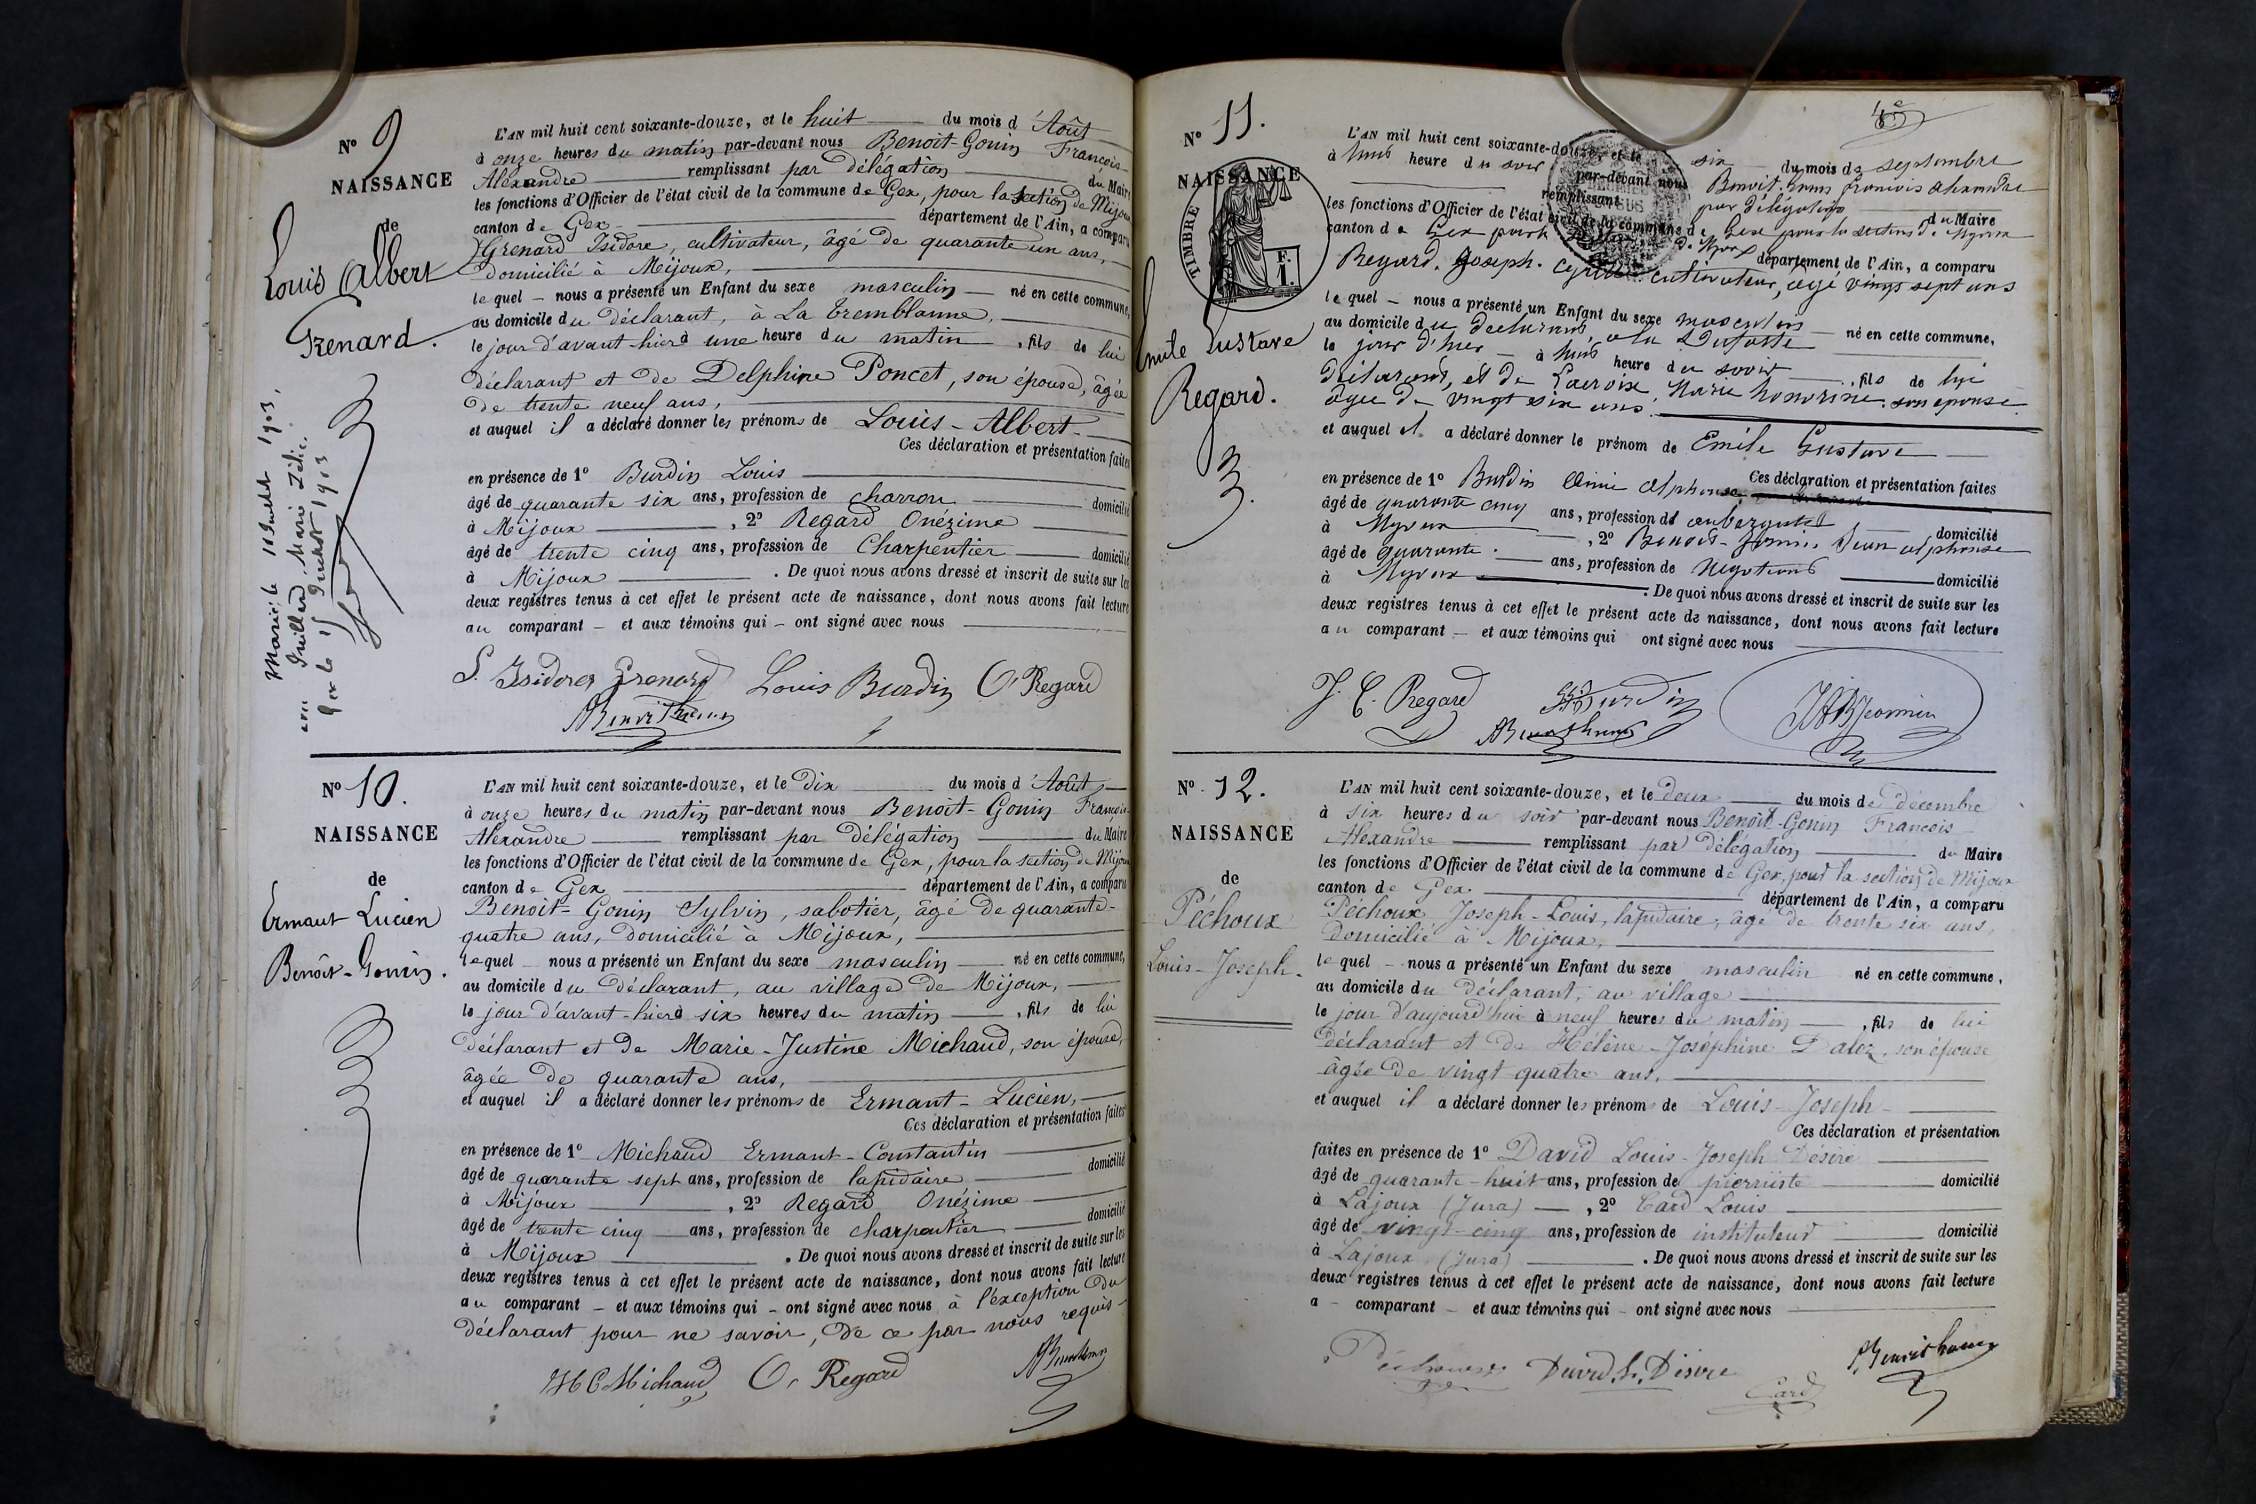 N° 9
NAISSANCE
de
Louis Albert
Grenard.
Marié le 11 Juillet 1903,
avec Juilland, Marie Zélie.
Gex le 15 Juillet 1903
L'AN mil huit cent soixante-douze, et le huit du mois d'Août
à onze heures du matin par-devant nous Benoit-Gonin François-
Alexandre remplissant par délégation du Maire
les fonctions d'Officier de l'état civil de la commune de Gex, pour la section de Mijoux
canton de Gex département de l'Ain, a comparu
Grenard Isidore, cultivateur, âgé de quarante un ans,
domicilié à Mijoux,
lequel – nous a présenté un Enfant du sexe masculin né en cette commune,
au domicile du déclarant, à La Tremblanne,
le jour d'avant-hier à une heure du matin, fils de lui
déclarant et de Delphine Poncet, son épouse, âgée
de trente neuf ans,
et auquel il a déclaré donner les prénoms de Louis-Albert
Ces déclaration et présentation faites
en présence de 1° Burdin Louis
âgé de quarante six ans, profession de charron domicilié
à Mijoux, 2° Regard Onézime
âgé de trente cinq ans, profession de Charpentier domicilié
à Mijoux. De quoi nous avons dressé et inscrit de suite sur les
deux registres tenus à cet effet le présent acte de naissance, dont nous avons fait lecture
au comparant – et aux témoins qui – ont signé avec nous
S. Isidore Grenard Louis Burdin O. Regard
N° 10.
NAISSANCE
de
Ermant Lucien
Benôit-Gonin.
L'AN mil huit cent soixante-douze, et le dix du mois d'Août
à onze heures du matin par-devant nous Benoit-Gonin François
Alexandre remplissant par délégation du Maire
les fonctions d'Officier de l'état civil de la commune de Gex, pour la section de Mijoux
canton de Gex département de l'Ain, a comparu
Benoit-Gonin Sylvin, sabotier, âgé de quarante-
quatre ans, domicilié à Mijoux,
lequel nous a présenté un Enfant du sexe masculin né en cette commune,
au domicile du déclarant, au village de Mijoux,
le jour d'avant-hier à six heures du matin, fils de lui
déclarant et de Marie-Justine Michaud, son épouse,
âgée de quarante ans,
et auquel il a déclaré donner les prénoms de Ermant-Lucien,
Ces déclaration et présentation faites
en présence de 1° Michaud Ermant-Constantin
âgé de quarante sept ans, profession de lapidaire domicilié
à Mijoux, 2° Regard Onézime
âgé de trente cinq ans, profession de charpentier domicilié
à Mijoux. De quoi nous avons dressé et inscrit de suite sur les
deux registres tenus à cet effet le présent acte de naissance, dont nous avons fait lecture
au comparant – et aux témoins qui – ont signé avec nous à l'exception du
déclarant pour ne savoir, de ce par nous requis-
Michaud O. Regard
N° 11.
NAISSANCE
TIMBRE
F.
1.
Emile Gustave
Regard.
L'AN mil huit cent soixante-douze, et le six du mois de septembre
à huit heure du soir par-devant nous Benoit Gonin François Alexandre
remplissant par délégation du Maire
les fonctions d'Officier de l'état civil de la commune de Gex pour la section de Myoux
canton de Gex département de l'Ain, a comparu
Regard Joseph Cyrille cultivateur, âgé vingt sept ans
lequel – nous a présenté un Enfant du sexe masculin né en cette commune,
au domicile du déclarant, à la
le jour d'hier à huit heure du soir, fils de lui
déclarant, et de Lacroix Marie honorine son épouse
âgée de vingt six ans.
et auquel il a déclaré donner le prénom de Emile Gustave
Ces déclaration et présentation faites
en présence de 1° Burdin Aimé Alphonse
âgé de quarante cinq ans, profession de aubergiste domicilié
à Myoux, 2° Benoit-Gonin, Jean alphonse
âgé de quarante ans, profession de Négotiant domicilié
à Myoux. De quoi nous avons dressé et inscrit de suite sur les
deux registres tenus à cet effet le présent acte de naissance, dont nous avons fait lecture
au comparant – et aux témoins qui ont signé avec nous
J. C. Regard Burdin
N° 12.
NAISSANCE
de
Péchoux
Louis-Joseph.
L'AN mil huit cent soixante-douze, et le deux du mois de décembre
à six heures du soir par-devant nous Benoit-Gonin François
Alexandre remplissant par délégation du Maire
les fonctions d'Officier de l'état civil de la commune de Gex, pour la section de Mijoux
canton de Gex département de l'Ain, a comparu
Péchoux Joseph-Louis, lapidaire, âgé de trente six ans,
domicilié à Mijoux,
lequel – nous a présenté un Enfant du sexe masculin né en cette commune,
au domicile du déclarant, au village
le jour d'aujourd'hui à neuf heures du matin, fils de lui
déclarant et de Hélène-Joséphine Daloz, son épouse
âgée de vingt quatre ans,
et auquel il a déclaré donner les prénoms de Louis-Joseph
Ces déclaration et présentation
faites en présence de 1° David Louis-Joseph Désiré
âgé de quarante-huit ans, profession de pierriiste domicilié
à Lajoux (Jura), 2° Card Louis
âgé de vingt-cinq ans, profession de instituteur domicilié
à Lajoux (Jura). De quoi nous avons dressé et inscrit de suite sur les
deux registres tenus à cet effet le présent acte de naissance, dont nous avons fait lecture
a – comparant – et aux témoins qui – ont signé avec nous
Péchoux David Désiré
Card